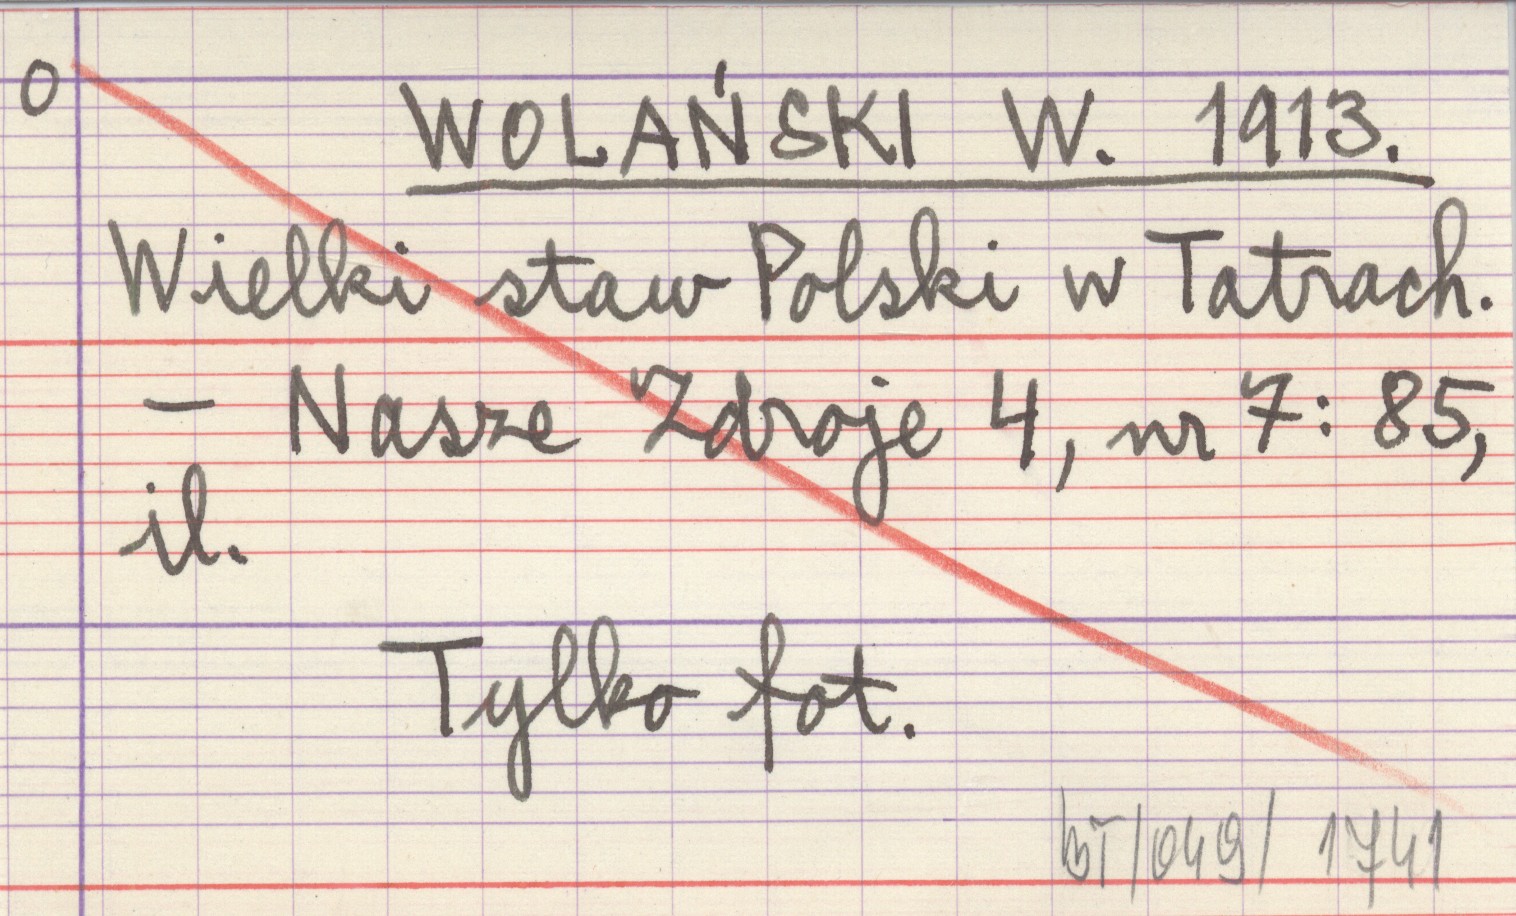 0
WOLAŃSKI W. 1913.
Wielki staw Polski w Tatrach.
– Nasze Zdroje 4, nr 7: 85,
il.
Tylko fot.
BT/049/ 1741